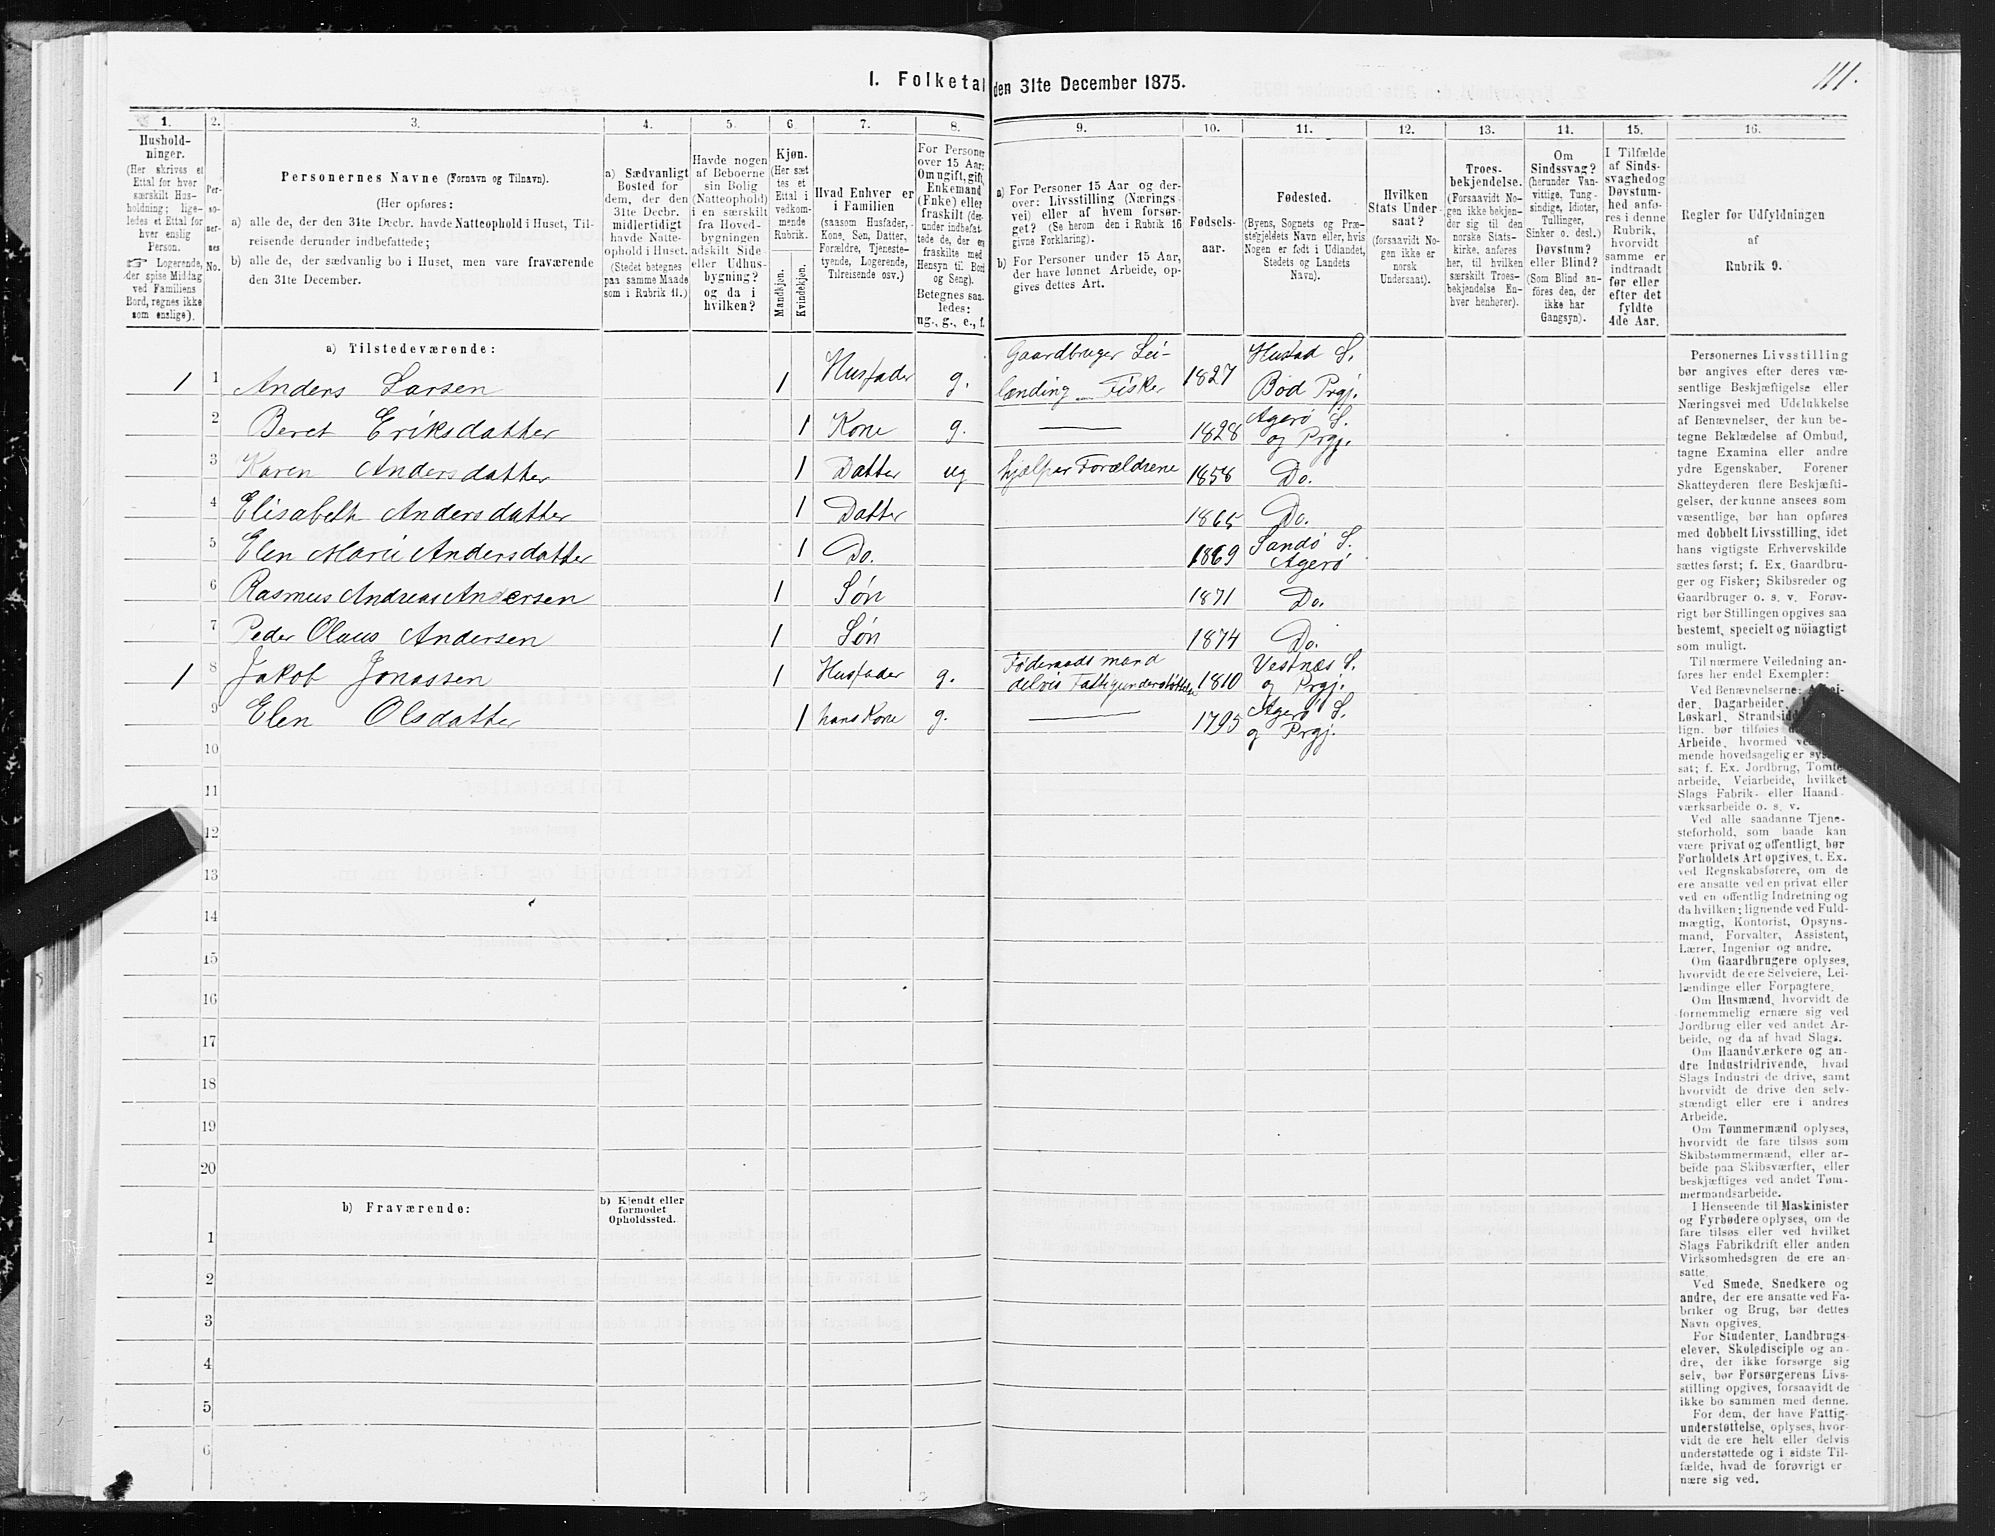 111.
I. Folketal den 31te December 1875.
1. 2. 3. 4. 5. 6. 7. 8. 9. 10. 11. 12. 13. 14. 15. 16.
Hushold-
ninger.
(Her skrives et
Ettal for hver
særskilt Hus-
holdning; lige-
ledes et Ettal for
hver enslig
Person.
☞ Logerende,
der spise Middag
ved Familiens
Bord, regnes ikke
som enslige).
Per-
so-
ner-
nes
No.
Personernes Navne (Fornavn og Tilnavn).
(Her opføres:
a) alle de, der den 31te Decbr. havde Natteophold i Huset, Til-
reisende derunder indbefattede;
b) alle de, der sædvanlig bo i Huset, men vare fraværende
den 31te December.
a) Sædvanligt
Bosted for
dem, der den
31te Decbr.
midlertidigt
havde Natte-
ophold i Huset.
(Stedet betegnes
paa samme Maade
som i Rubrik 11.)
Havde nogen
af Beboerne
sin Bolig
(Natteophold)
i en særskilt
fra Hoved-
bygningen
adskilt Side-
eller Udhus-
bygning?
og da i
hvilken?
Kjøn.
(Her sæt-
tes et
Ettal i
vedkom-
mende
Rubrik.
Mandkjøn.
Kvindekjøn.
Hvad Enhver er
i Familien
(saasom Husfader,
Kone, Søn, Datter,
Forældre, Tjeneste-
tyende, Logerende,
Tilreisende osv.)
For Personer
over 15 Aar:
Om ugift, gift,
Enkemand
(Enke) eller
fraskilt (der-
under indbefat-
tede de, der er
fraskilte med
Hensyn til Bord
og Seng).
Betegnes saa-
ledes:
ug., g., e., f.
a) For Personer 15 Aar og der-
over: Livsstilling (Nærings-
vei) eller af hvem forsør-
get? (Se herom den i Rubrik 16
givne Forklaring).
b) For Personer under 15 Aar,
der have lønnet Arbeide, op-
gives dettes Art.
Fødsels-
aar.
Fødested.
(Byens, Sognets og Præ-
stegjeldets Navn eller, hvis
Nogen er født i Udlandet,
Stedets og Landets
Navn).
Hvilken
Stats Under-
saat?
(forsaavidt No-
gen ikke er
norsk
Undersaat).
Troes-
bekjendelse.
(Forsaavidt No-
gen ikke bekjen-
der sig til den
norske Stats-
kirke, anføres
her, til hvilken
særskilt Troes-
bekjendelse En-
hver henhører).
Om
Sindssvag?
(herunder Van-
vittige, Tung-
sindige, Idioter,
Tullinger,
Sinker o. desl.)
Døvstum?
eller Blind?
(Som Blind an-
føres den, der
ikke har
Gangsyn).
I Tilfælde
af Sinds-
svaghed og
Døvstum-
hed anfø-
res i denne
Rubrik,
hvorvidt
samme er
indtraadt
før eller
efter det
fyldte
4de Aar.
Regler for Udfyldningen
af
Rubrik 9.
a) Tilstedeværende:
1 1 Anders Larsen 1 Husfader g. Gaardbruger Lei-
lænding Fisker 1827 Hustad S.
Bod Prgj.
2 Beret Eriksdatter 1 Kone g. — 1828 Agerø S.
og Prgj.
3 Karen Andersdatter 1 Datter ug hjælper Forældrene 1858 Do.
4 Elisabeth Andersdatter 1 Datter 1865 Do.
5 Elen Marie Andersdatter 1 Do. 1869 Sandø S.
Agerø
6 Rasmus Andreas Andersen 1 Søn 1871 Do.
7 Peder Olaus Andersen 1 Søn 1874 Do.
1 8 Jakob Jonassen 1 Husfader g. Føderaadsmand
delvis Fattigunderstøttelse 1810 Vestnæs S.
og Prgj.
9 Elen Olsdatter 1 hans Kone g. — 1795 Agerø S.
og Prgj.
10
11
12
13
14
15
16
17
18
19
20
b) Fraværende:
b) Kjendt eller
formodet
Opholdssted.
1
2
3
4
5
6
Personernes Livsstilling
bør angives efter deres væ-
sentlige Beskjæftigelse eller
Næringsvei med Udelukkelse
af Benævnelser, der kun be-
tegne Beklædelse af Ombud,
tagne Examina eller andre
ydre Egenskaber. Forener
Skatteyderen flere Beskjæfti-
gelser, der kunne ansees som
væsentlige, bør han opføres
med dobbelt Livsstilling, idet
hans vigtigste Erhvervskilde
sættes først; f. Ex. Gaardbru-
ger og Fisker; Skibsreder og
Gaardbruger o. s. v. Forøv-
rigt bør Stillingen opgives saa
bestemt, specielt og nöiagtigt
som muligt.
Til nærmere Veiledning an-
føres her endel Exempler:
Ved Benævnelserne: Arbei-
der, Dagarbeider,
Løskarl, Strandsid
lign. bør tilføies
Arbeide, hvormed
mende hovedsagelig er sys
sat; f. Ex. Jordbrug, Tomte-
arbeide, Veiarbeide, hvilket
Slags Fabrik- eller Haand-
værksarbeide o. s. v.
Ved alle saadanne Tjene-
steforhold, som baade kan
være privat og offentligt, bør
Forholdets Art opgives, t. Ex.
ved Regnskabsførere, om de
ere ansatte ved en privat eller
ved en offentlig Indretning og
da hvilken; lignende ved Fuld-
mægtig, Kontorist, Opsyns-
mand, Forvalter, Assistent,
Lærer, Ingeniør og andre.
Om Gaardbrugere oplyses,
hvorvidt de ere Selveiere, Lei-
lændinge eller Forpagtere.
Om Husmænd, hvorvidt de
fornemmelig ernære sig ved
Jordbrug eller ved andet Ar-
beide, og da af hvad Slags.
Om Haandværkere og an-
dre Industridrivende, hvad
Slags Industri de drive, samt
hvorvidt de drive den selv-
stændigt eller ere i andres
Arbeide.
Om Tømmermænd oplyses,
hvorvidt de fare tilsøs som
Skibstømmermænd, eller ar-
beide paa Skibsværfter, eller
beskjæftiges ved andet Tøm-
mermandsarbeide.
I Henseende til Maskinister
og Fyrbødere oplyses, om de
fare tilsøs eller ved hvilket
Slags Fabrikdrift eller anden
Virksomhedsgren de ere an-
satte.
Ved Smede, Snedkere og
andre, der ere ansatte ved Fa-
briker og Brug, bør dettes
Navn opgives.
For Studenter, Landbrugs-
elever, Skoledisciple og an-
dre, der ikke forsørge sig
selv, bør Forsørgerens Livs-
stilling opgives, forsaavidt de
ikke bo sammen med denne.
For dem, der have Fattig-
understøttelse, oplyses, hvor-
vidt de ere helt eller delvis
understøttede og i sidste Til-
fælde, hvad de forøvrigt er-
nære sig ved.